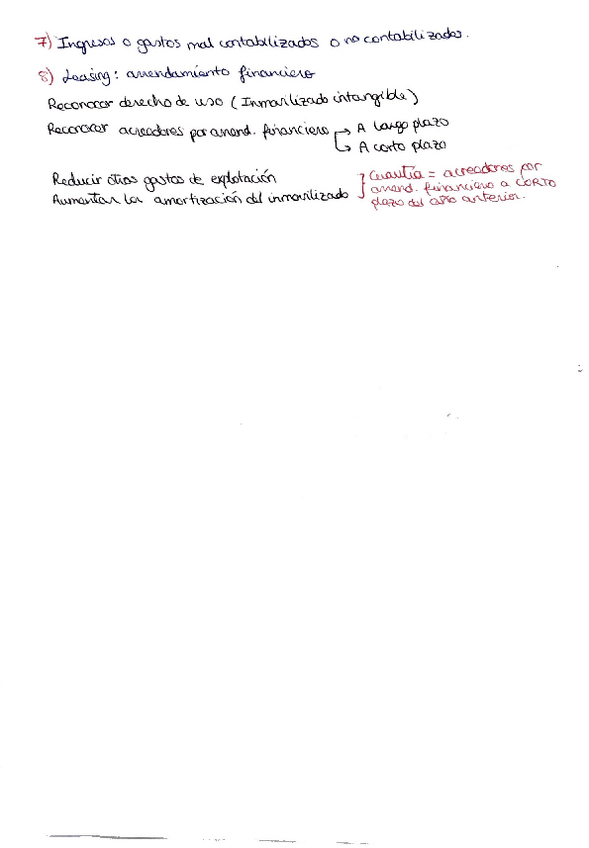 7) Ingresos o gastos mal contabilizados o no contabilizados.
8) Leasing: arrendamiento financiero
Reconocer derecho de uso (Inmovilizado intangible)
Reconocer acreedores por arrend. financiero → A largo plazo
→ A corto plazo
Reducir otros gastos de explotación
Aumentar la amortización del inmovilizado
Cuantía = acreedores por
arrend. financiero a CORTO
plazo del año anterior.